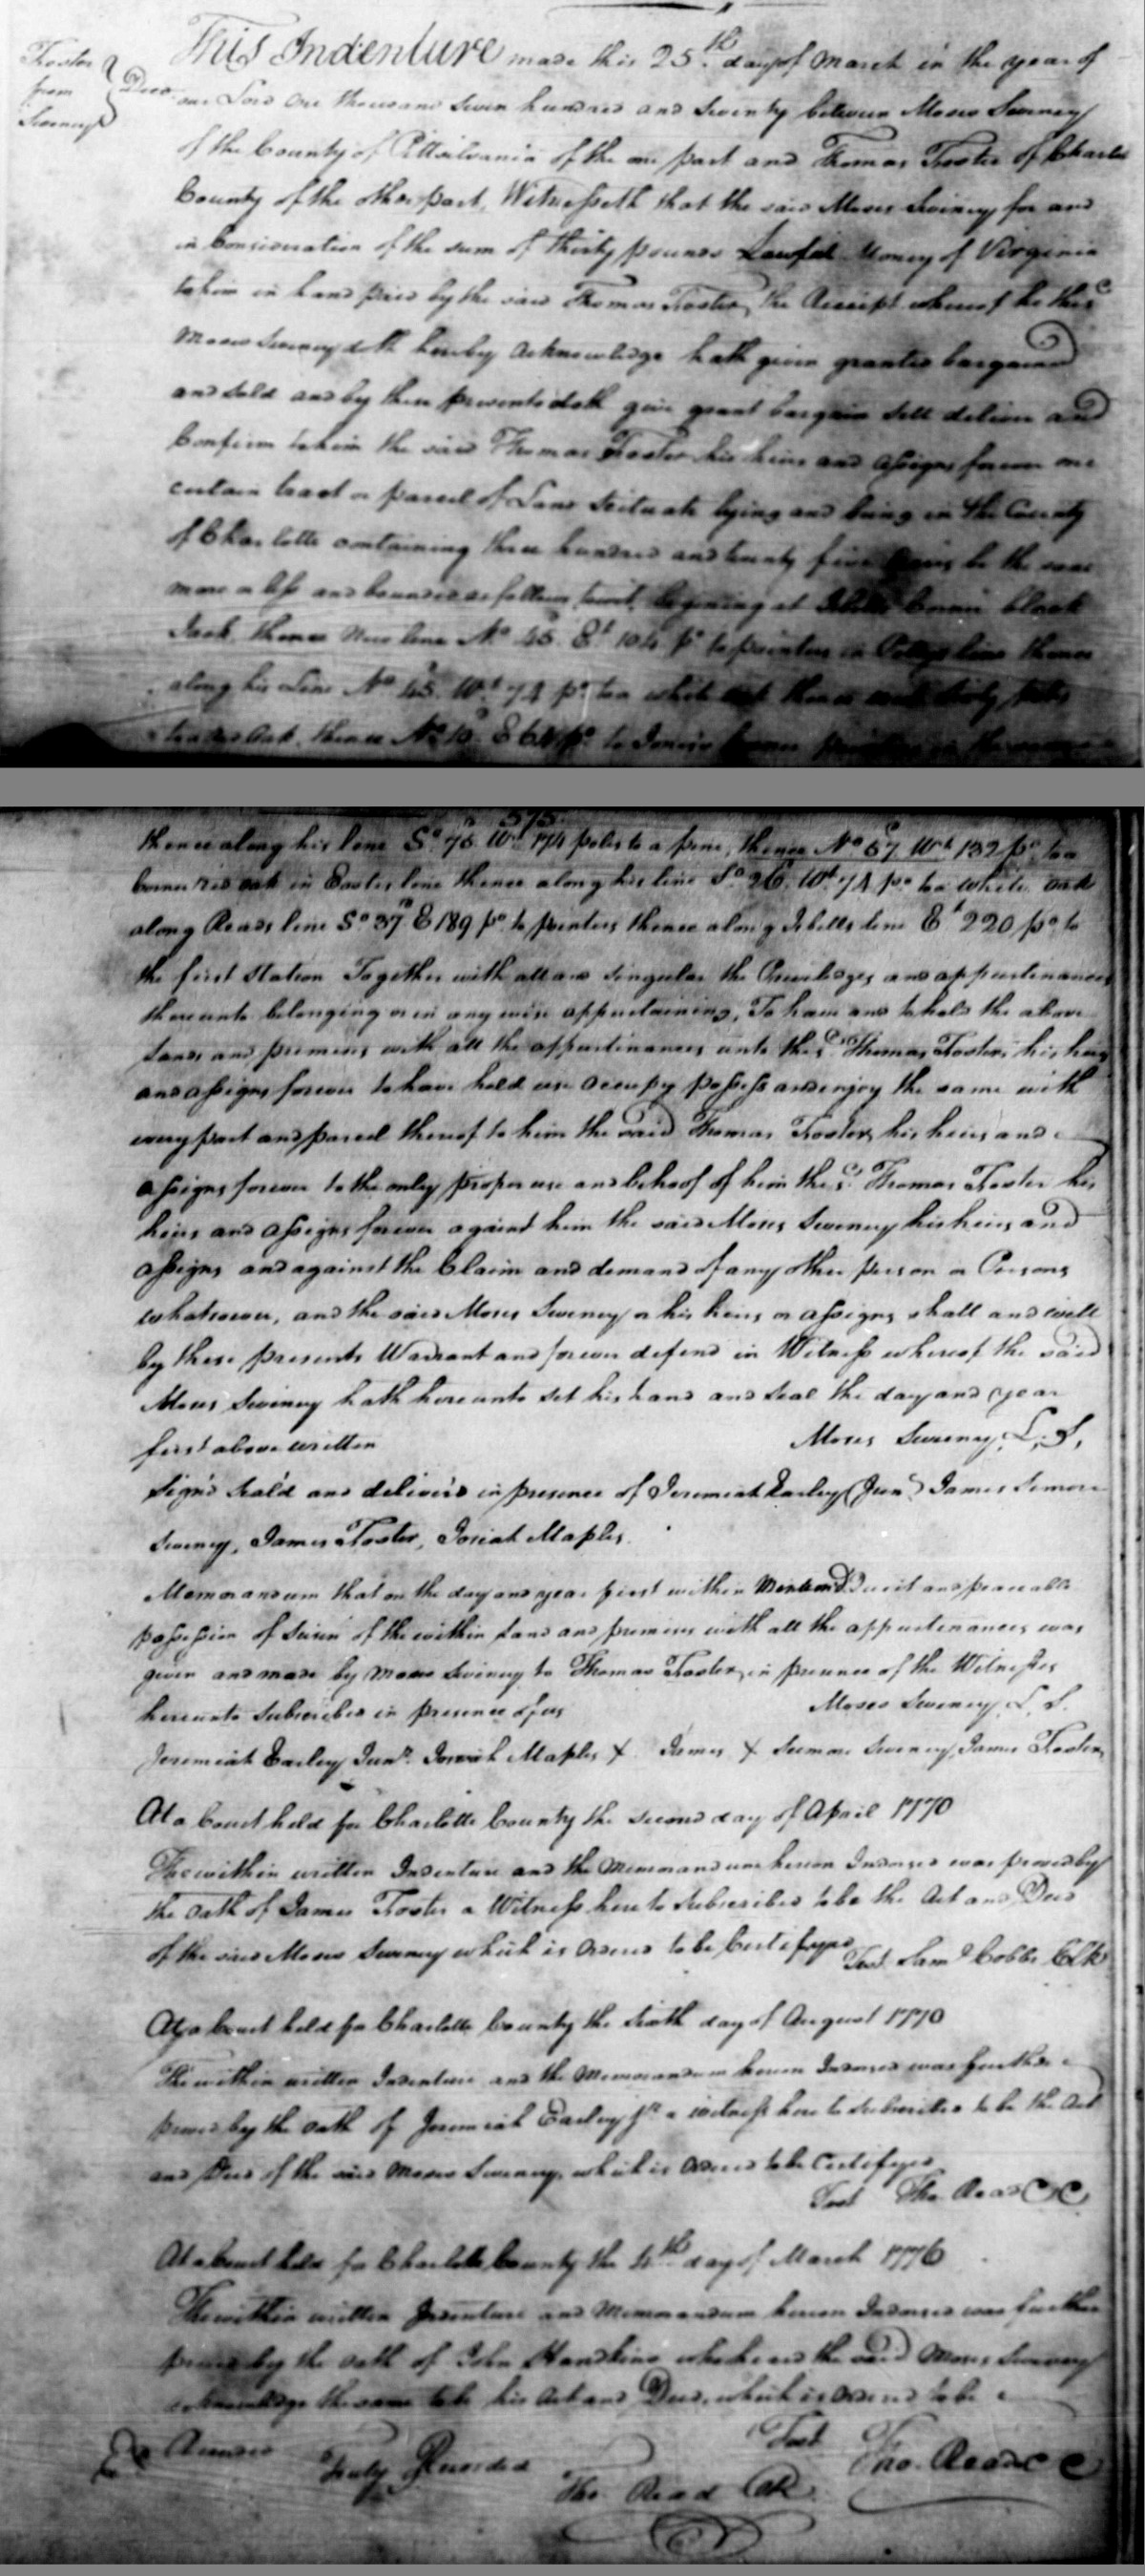 Foster
from
Sweney
Deed
This Indenture made this 25th. day of March in the year of
our Lord One thousand Seven hundred and Seventy between Moses Sweney
of the County of Pittsilvania of the one part and Thomas Foster of Charlotte
County of the other part, Witnesseth that the said Moses Sweney for and
in Consideration of the sum of thirty pounds Lawful Money of Virginia
to him in hand paid by the said Thomas Foster, the Receipt whereof he the sd
Moses Sweney doth hereby Acknowledge hath given granted bargained
and sold and by these presents doth give grant bargain sell deliver and
Confirm to him the said Thomas Foster his heirs and assigns forever one
certain tract or parcel of Land Scituate lying and being in the County
of Charlotte containing three hundred and twenty five be the same
more or less and bounded as follows, towit, begining at Isbells Corner black
Jack, thence New line No. 45. Et. 104 po to pointers in line thence
along his Line No 45. Wt. 74 po. to a white oak thence
to a red Oak, thence No 10. E 64 po. to Jones's Corner
575.
thence along his line So. 75 Wt. 174 poles to a pine, thence No 57 Wt. 132 po. to a
Corner red oak in Easters line thence along his line So. 26. Wt. 74 po. to a white oak
along Reads line So 37 E 189 po. to pointers thence along Isbells line Et 220 po to
the first Station Together with all and singular the Priviledges and appurtinances
thereunto belonging or in any wise appertaining, To have and to hold the above
Land and premises with all the appurtinances unto the sd. Thomas Foster, his heirs
and assigns forever to have hold use Occupy possess and enjoy the same with
every part and parcel thereof to him the said Thomas Foster, his heirs and
assigns forever to the only proper use and behoof of him the sd. Thomas Foster his
heirs and assigns forever against him the said Moses Sweney his heirs and
assigns and against the Claim and demand of any other person or Persons
whatsoever, and the said Moses Sweney or his heirs or assigns shall and will
by these presents Warrant and forever defend in Witness whereof the said
Moses Sweney hath hereunto set his hand and Seal the day and year
first above written Moses Sweney, L.S.
Sign'd Seal'd and deliver'd in presence of Jeremiah Earley (Junr.) James Semore
Sweney, James Foster, Josiah Maples.
Memorandum that on the day and year first within Mentiond Quiet and peaceable
possession of Seisen of the within Land and premises with all the appurtenances was
given and made by Moses Sweney to Thomas Foster, in presence of the Witnesses
hereunto Subscribed in presence of us Moses Sweney, L.S.
Jeremiah Earley Junr. Josiah Maples X James X Seemore Sweney, James Foster,
At a Court held for Charlotte County the second day of April 1770
The within written Indenture and the Memorandum hereon Indorsed was proved by
the Oath of James Foster a Witness hereto Subscribed to be the Act and Deed
of the said Moses Sweney which is Ordered to be Certifyed
Test Saml. Cobbs Clk
At a Court held for Charlotte County the Sixth day of August 1770
The within written Indenture and the Memorandum hereon Indorsed was further
proved by the Oath of Jeremiah Earley Jr. a witness hereto Subscribed to be the Act
and Deed of the said Moses Sweney, which is Ordered to be Certifyed
Test Tho. Read CC
At a Court held for Charlotte County the 4th day of March 1776
The within written Indenture and Memorandum hereon Indorsed was further
proved by the Oath of John Hankins who heard the said Moses Sweney
acknowledge the same to be his Act and Deed, which is Ordered to be
Recorded Test Tho. Read CC
Truly Recorded
Tho. Read CR